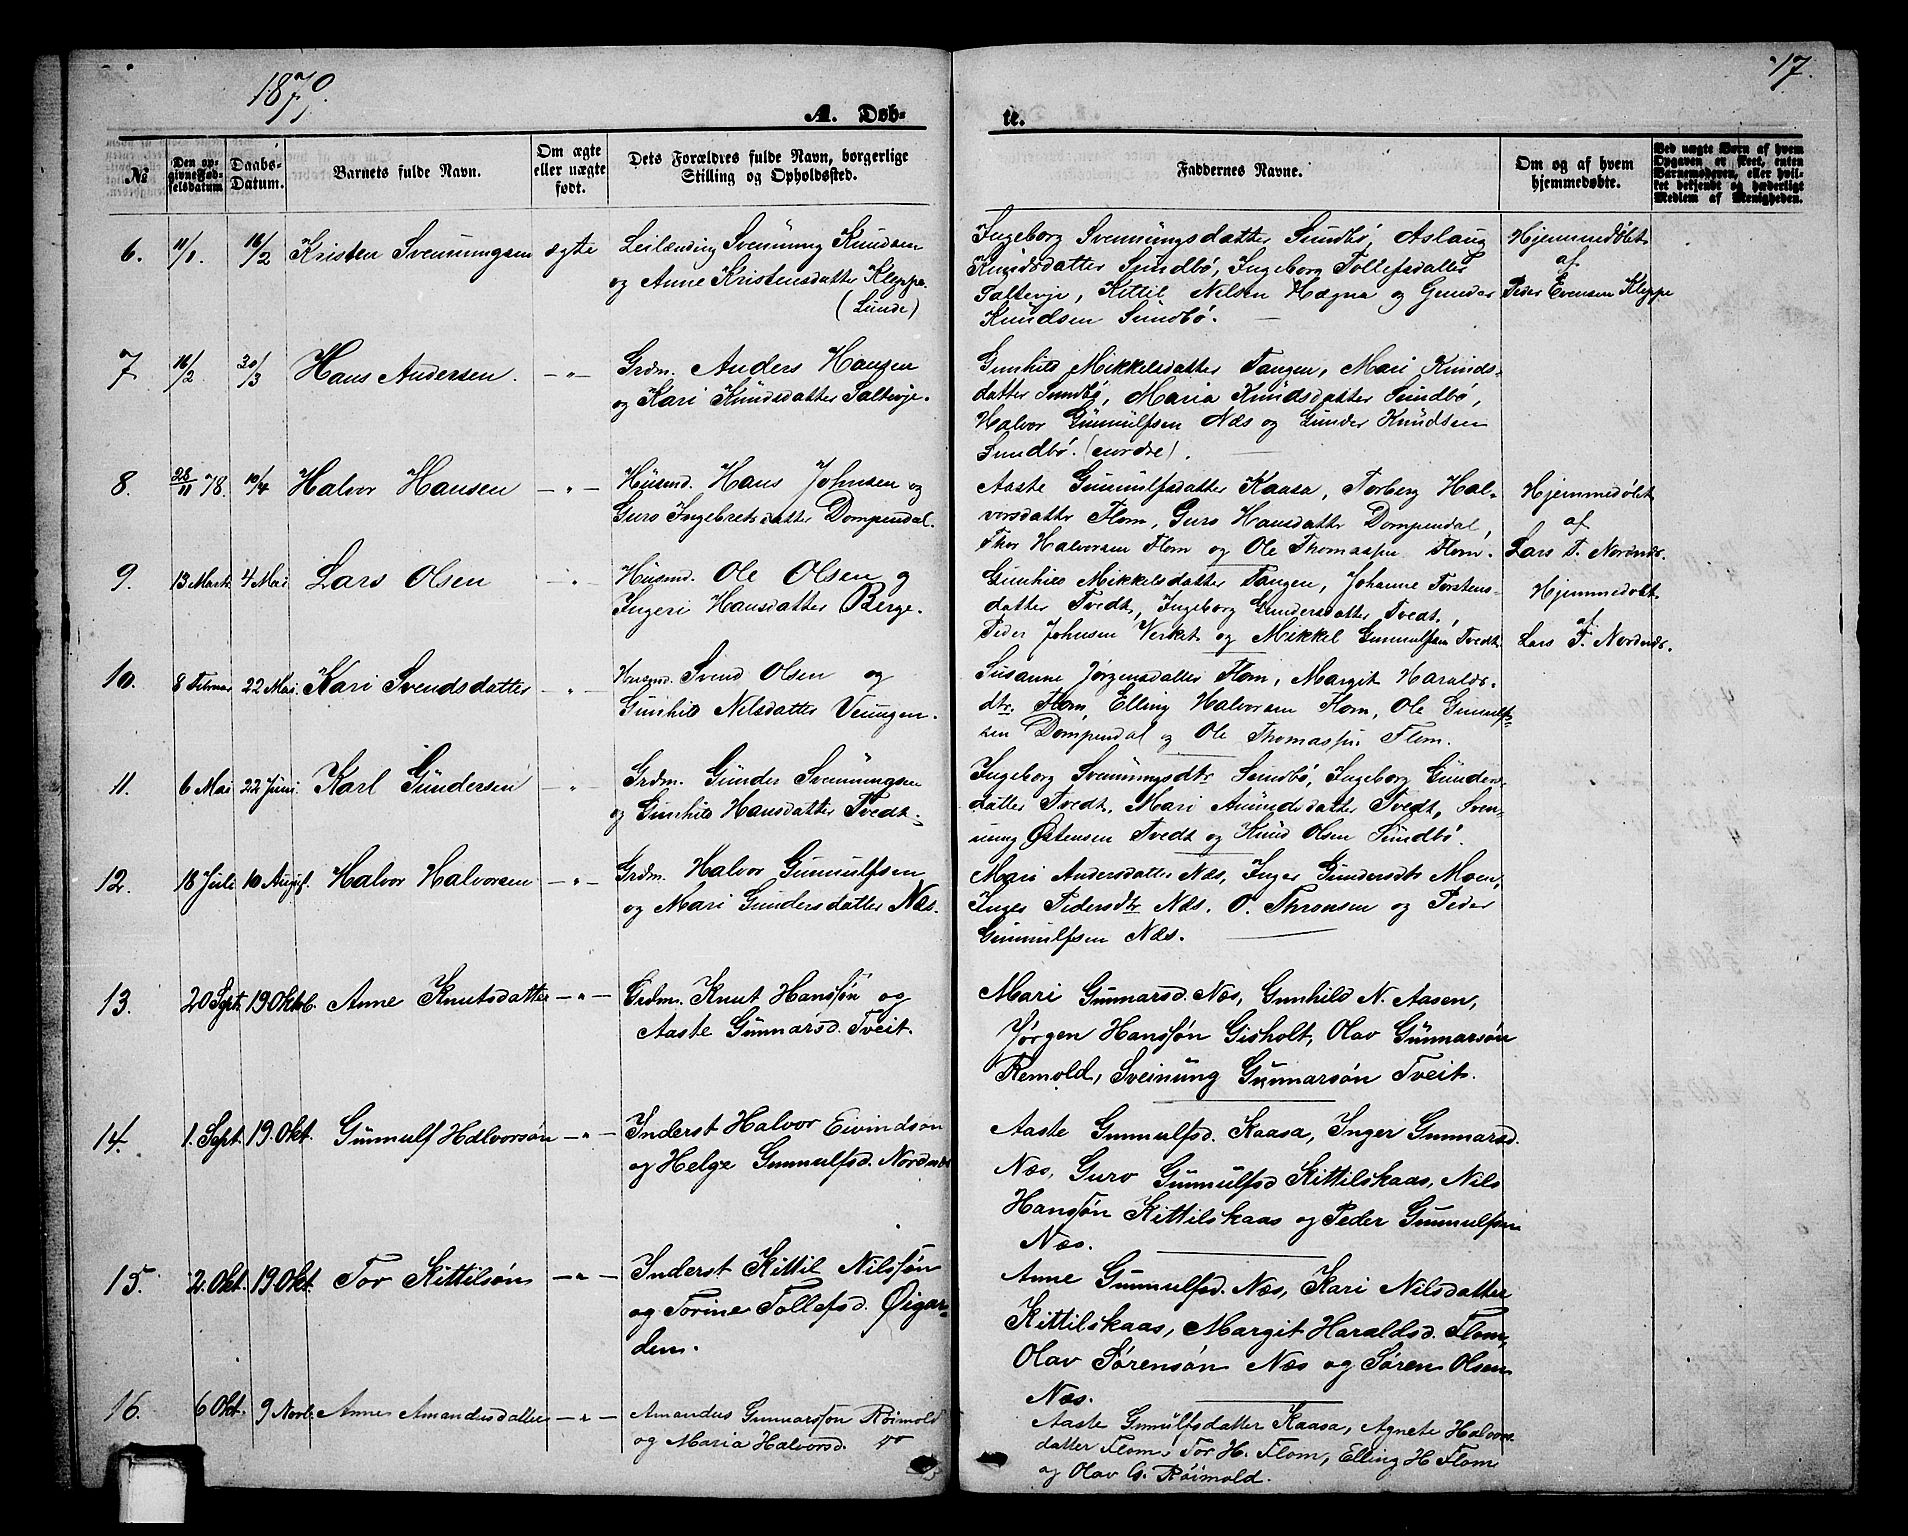 1879.
17.
A. Døb-
te.
No
Den op-
givne Fød-
selsdatum
Daabs-
Datum.
Barnets fulde Navn.
Om ægte
eller uægte
født.
Dets Forældres fulde Navn, borgerlige
Stilling og Opholdssted.
Faddernes Navne.
Om og af hvem
hjemmedøbte.
Ved uægte Børn af hvem
Opgaven er skeet, enten
Barnemoderen, eller hvil-
ket bekjendt og hæderligt
Medlem af Menigheden.
6. 11/1. 16/2 Kristen Svennungsen ægte
Leilænding Svennung Knudsen
og Anne Kristensdatter Kleppe.
(Lunde)
Ingeborg Svennungsdatter Sundbø, Aslaug
Knudsdatter Sundbø, Ingeborg Tollefsdatter
Saltevje, Kittil Nilsen Hægna og Gunder
Knudsen Sundbø.
Hjemmedøbt
af
Peder Evensen Kleppe
7 16/2. 30/3 Hans Andersen. — " —
Grdm. Anders Hansen
og Kari Knudsdatter Saltevje.
Gunhild Mikkelsdatter Tangen, Mari Knuds-
datter Sundbø, Maria Knudsdatter Sundbø,
Halvor Gunnulfsen Næs og Gunder Knudsen
Sundbø. (nordre).
8. 28/11 78. 10/4 Halvor Hansen — " —
Husmd. Hans Johnsen og
Guro Ingebretsdatter Dompendal.
Aaste Gunnulfsdatter Kaasa, Torberg Hal-
vorsdatter Flom, Guro Hansdatter Dompendal,
Thor Halvorsen Flom og Ole Thomassen Flom.
Hjemmedøbt
af
Lars T. Nordnæs.
9. 13 Marts 4 Mai Lars Olsen "
Husmd. Ole Olsen og
Ingeri Hansdatter Berge.
Gunhild Mikkelsdatter Tangen, Johanne Torstens-
datter Tvedt, Ingeborg Gundersdatter Tvedt,
Peder Johnsen Verket og Mikkel Gunnulfsen Tvedt.
Hjemmedøbt
af
Lars T. Nordnæs.
10. 8 Februar 22 Mai. Kari Svendsdatter — " —
Husmd. Svend Olsen og
Gunhild Nilsdatter Veungen.
Susanne Jørgensdatter Flom, Margit Haralds-
dtr. Flom, Elling Halvorsen Flom, Ole Gunnulf-
sen Dompendal og Ole Thomassen Flom.
11. 6 Mai 22 Juni. Karl Gundersen — " —
Grdm. Gunder Svennungsen
og Gunhild Hansdatter Tvedt.
Ingeborg Svennungsdtr Sundbø, Ingeborg Gunders-
datter Tvedt, Mari Amundsdatter Tvedt, Sven-
nung Østensen Tvedt og Knud Olsen Sundbø.
12. 18 Juli 10 August. Halvor Halvorsen — " —
Grdm. Halvor Gunnulfsen
og Mari Gundersdatter Næs.
Mari Andersdatter Næs, Inger Gundersdtr Moen,
Inger Pedersdtr Næs. O. Thronsen og Peder
Gunnulfsen Næs.
13. 20 Sept. 19 Oktob. Anne Knutsdatter — " —
Grdm. Knut Hansson og
Aaste Gunnarsd. Tveit.
Mari Gunnarsd. Næs, Gunhild N. Aasen,
Jørgen Hanssøn Gisholt, Olav Gunnarsøn
Remold, Sveinung Gunnarsøn Tveit.
14. 1. Sept. 19. Okt. Gunnulf Halvorsøn — " —
Inderst Halvor Eivindsøn
og Helge Gunnulfsd. Nordnæs
Aaste Gunnulfsd. Kaasa, Inger Gunnarsd.
Næs, Guro Gunnulfsd Kittilskaas, Nils
Hanssøn Kittilskaas og Peder Gunnulfsen
Næs.
15. 2. Okt. 19 Okt. Tor Kittilsøn — " —
Inderst Kittil Nilssøn
og Torine Tollefsd. Øigar-
den.
Anne Gunnulfsd. Næs, Kari Nilsdatter
Kittilskaas, Margit Haraldsd. Flom,
Olav Sørensøn Næs og Søren Olsen
Næs.
16. 6 Okt. 9 Novb. Anne Amandusdatter — " —
Amandus Gunnarssøn Røimold
og Maria Halvorsd. do
Aaste Gunnulfsdatter Kaasa, Agnete Halvors
datter Flom, Tor H. Flom, Elling H Flom
og Olav G. Røimold.